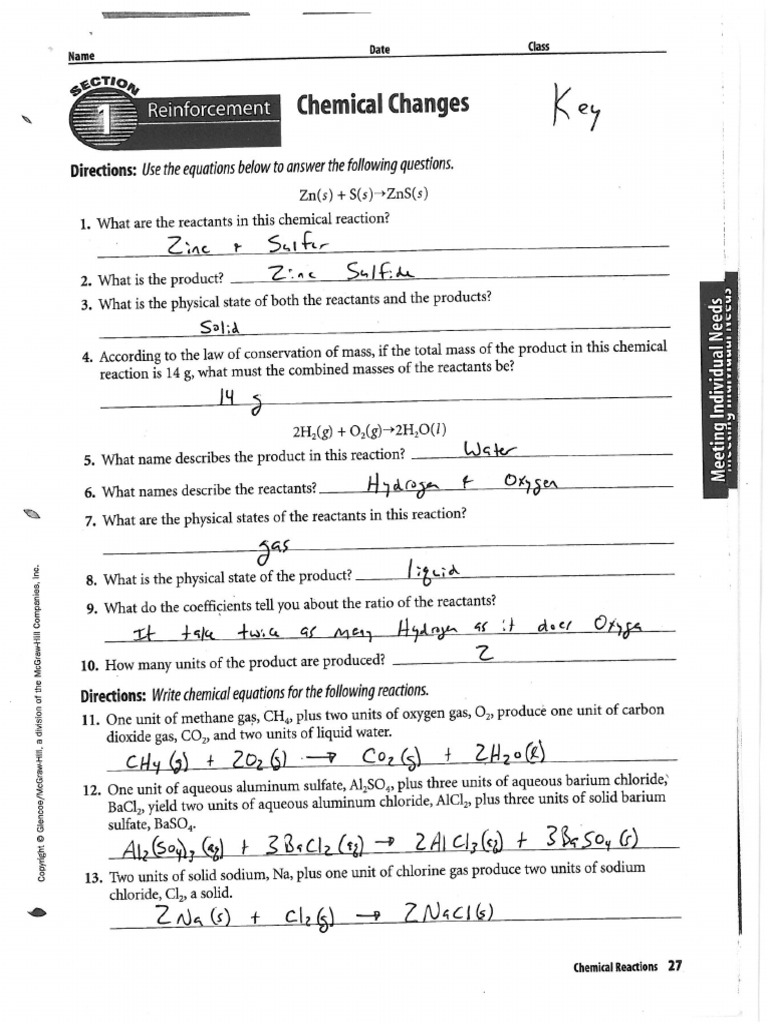 Name Date Class
SECTION
1 Reinforcement Chemical Changes Key
Directions: Use the equations below to answer the following questions.
Zn(s) + S(s)→ZnS(s)
1. What are the reactants in this chemical reaction?
Zinc + Sulfur
2. What is the product? Zinc Sulfide
3. What is the physical state of both the reactants and the products?
Solid
4. According to the law of conservation of mass, if the total mass of the product in this chemical
reaction is 14 g, what must the combined masses of the reactants be?
14 g
2H₂(g) + O₂(g)→2H₂O(l)
5. What name describes the product in this reaction? Water
6. What names describe the reactants? Hydrogen + Oxygen
7. What are the physical states of the reactants in this reaction?
gas
8. What is the physical state of the product? liquid
9. What do the coefficients tell you about the ratio of the reactants?
It take twice as many Hydrogen as it does Oxyge
10. How many units of the product are produced? 2
Directions: Write chemical equations for the following reactions.
11. One unit of methane gas, CH₄, plus two units of oxygen gas, O₂, produce one unit of carbon
dioxide gas, CO₂, and two units of liquid water.
CH₄(g) + 2O₂(g) → CO₂(g) + 2H₂O(l)
12. One unit of aqueous aluminum sulfate, Al₂SO₄, plus three units of aqueous barium chloride,
BaCl₂, yield two units of aqueous aluminum chloride, AlCl₂, plus three units of solid barium
sulfate, BaSO₄.
Al₂(SO₄)₃(aq) + 3BaCl₂(aq) → 2AlCl₃(aq) + 3BaSO₄(s)
13. Two units of solid sodium, Na, plus one unit of chlorine gas produce two units of sodium
chloride, Cl₂, a solid.
2Na(s) + Cl₂(g) → 2NaCl(s)
Chemical Reactions 27
Meeting Individual Needs
Meeting Individual Needs
Copyright © Glencoe/McGraw-Hill, a division of the McGraw-Hill Companies, Inc.